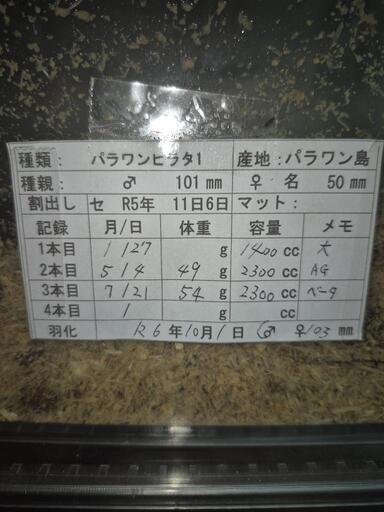 種類： パラワンヒラタ1 産地：パラワン島
種親： ♂ 101 mm ♀ 名 50 mm
割出し セ R5年 11日6日 マット：
記録 月/日 体重 容量 メモ
1本目 1/27 g 1400 cc 大
2本目 5/4 49 g 2300 cc AG
3本目 7/21 54 g 2300 cc ベータ
4本目 / g cc
羽化 R6年10月1日 ♂ ♀103 mm